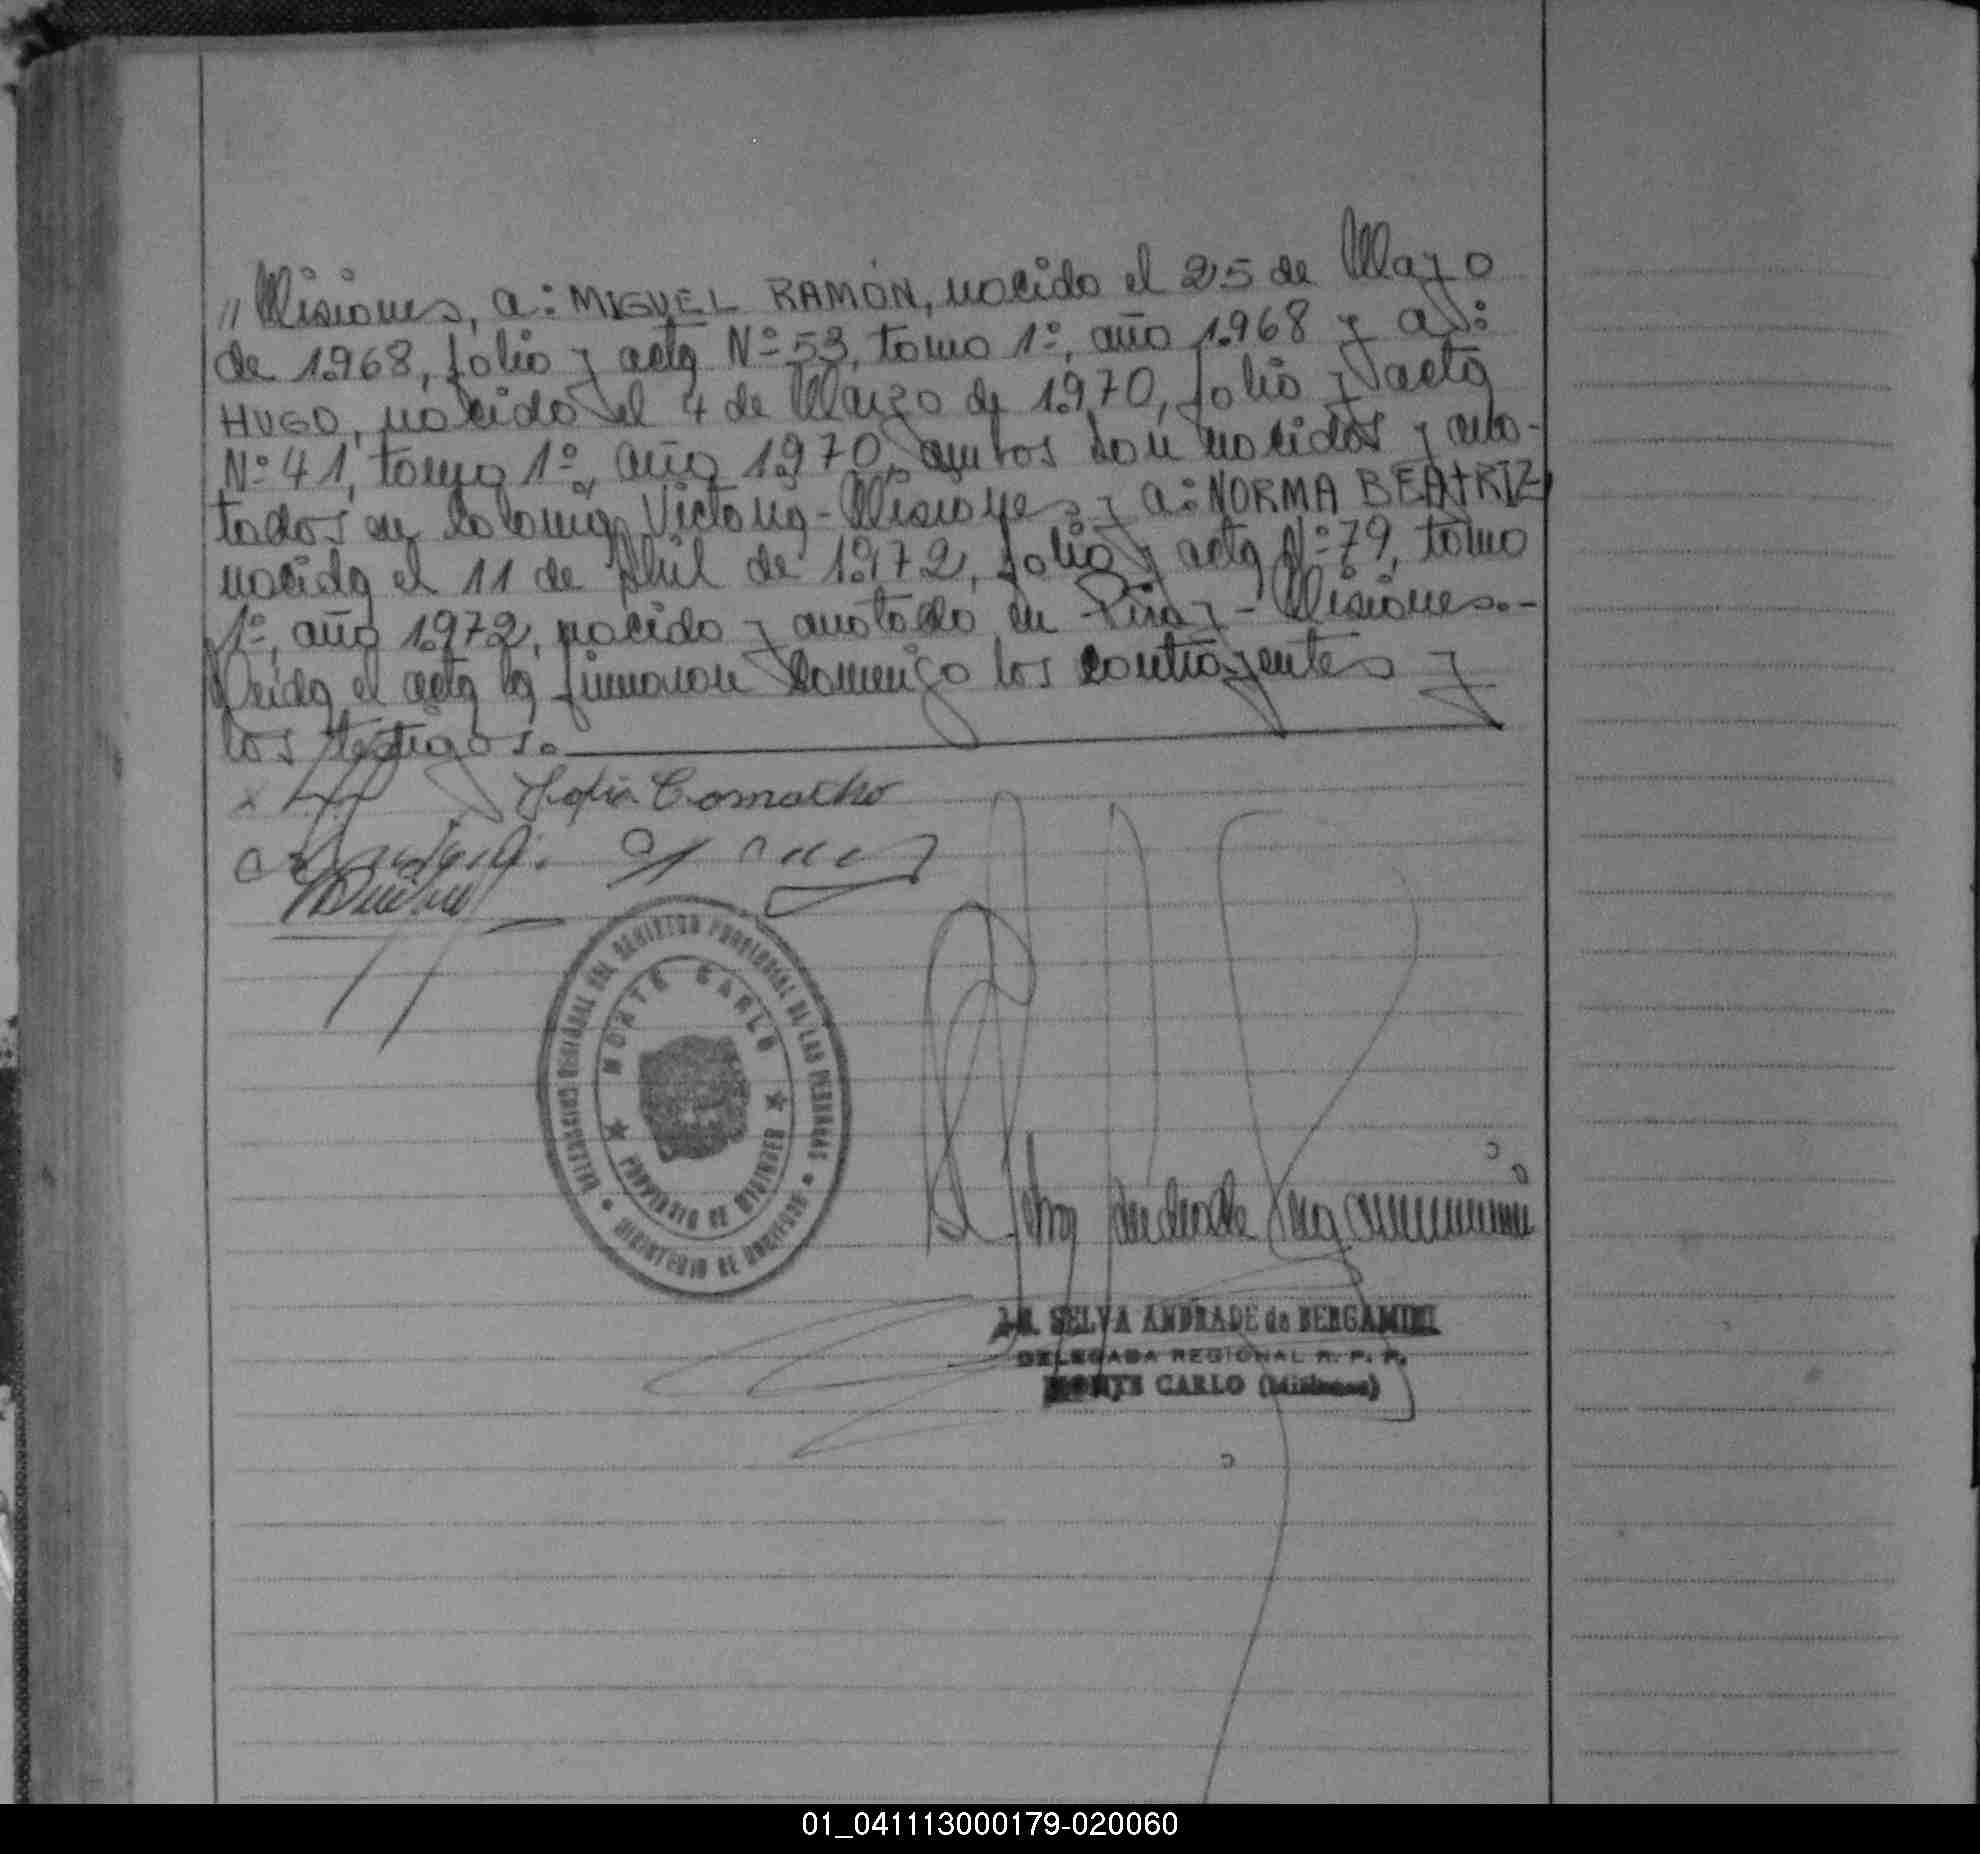 // Misiones, a: MIGUEL RAMÓN, nacido el 25 de Mayo
de 1.968, folio y acta Nº 53, tomo 1º, año 1.968 y a:
HUGO, nacido el 4 de Marzo de 1.970, folio y acta
Nº 41, tomo 1º, año 1.970, ambos son nacidos y ano-
tados en Colonia Victoria - Misiones y a: NORMA BEATRIZ,
nacida el 11 de Abril de 1.972, folio y acta Nº 79, tomo
1º, año 1.972, nacido y anotado en Piray - Misiones.-
Leida el acta la firmaron conmigo los contrayentes y
los testigos.
Sofia Comacho
DELEGACION REGIONAL DEL REGISTRO PROVINCIAL DE LAS PERSONAS
MINISTERIO DE GOBIERNO
MONTE CARLO
PROVINCIA DE MISIONES
Selva Andrade Bergamini
SELVA ANDRADE de BERGAMINI
DELEGADA REGIONAL R. P. P.
MONTE CARLO (Misiones)
01_041113000179-020060